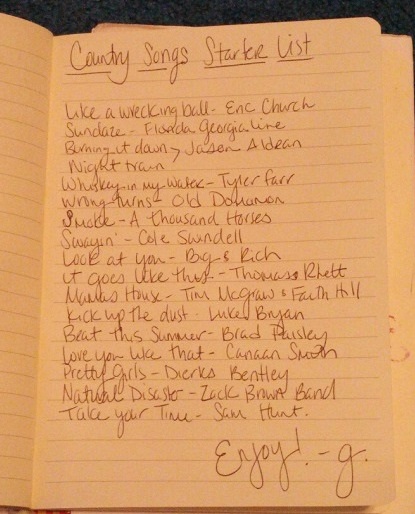 Country Songs Starter List
Like a wrecking ball - Eric Church
Sundaze - Florida Georgia line
Burning it down > Jason Aldean
Night train
Whiskey in my water - Tyler Farr
Wrong turns - Old Dominion
Smoke - A thousand Horses
Swayin' - Cole Swindell
Look at you - Big & Rich
it goes like this - Thomas Rhett
Mamas House - Tim McGraw & Faith Hill
Kick up the dust - Luke Bryan
Beat this Summer - Brad Paisley
Love you like that - Canaan Smith
Pretty Girls - Dierks Bentley
Natural Disaster - Zack Brown Band
Take your Time - Sam Hunt.
Enjoy! - g.